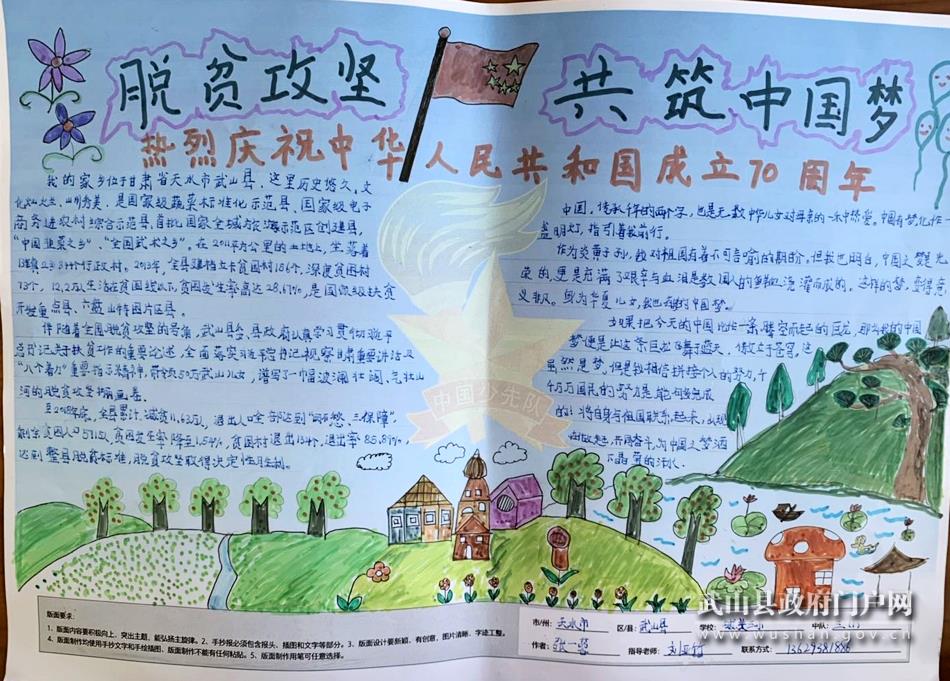 脱贫攻坚
共筑中国梦
热烈庆祝中华人民共和国成立70周年
我的家乡位于甘肃省天水市武山县，这里历史悠久，文
化，山川秀美，是国家级蔬菜标准化示范县、国家级电子
商务进农村综合示范县、首批国家全域旅游示范区创建县，
“中国韭菜之乡”、“全国武术之乡”。在2011平方公里的土地上，坐落着
行政村。2013年，全县建档立卡贫困村186个，深度贫困村
73个，12.2万人生活在贫困线以下，贫困发生率高达28.67%，是国家级扶贫
开发重点县、六盘山特困片区县。
伴随着全国脱贫攻坚的号角，武山县委、县政府认真学习贯彻习近平
总书记关于扶贫工作的重要论述，全面落实习近平总书记视察甘肃重要讲话及
“八个着力”重要指示精神，带领武山儿女，谱写了一幅波澜壮阔、气壮山
河的脱贫攻坚画卷。
至2018年底，全县累计减贫11.63万人，退出人口全部达到“两不愁、三保障”，
剩余贫困人口，贫困发生率降至1.54%，贫困村退出，退出率
达到整县脱贫标准，脱贫攻坚取得决定性胜利。
中国，传承千年的两个字，也是无数中华儿女对母亲的
盏明灯，指引着我前行。
作为炎黄子孙，我对祖国有着不可言喻的期盼，但我也明白，中国之梦是光
荣的，更是充满了艰辛与血泪是数国人的鲜血浇灌而成的，这样的梦，显得意
义非凡。身为华夏儿女，我也有我的中国梦。
如果把今天的中国比作一条腾空而起的巨龙，那么我的中国
梦便是让这条巨龙飞舞于蓝天，傲立于苍穹。这
虽然是梦，但是我相信，拼接个人的努力，千
千万万国民的努力是能何我完成
的！将自身与祖国联系起来，
做起，共同奋斗，为中国之梦洒
下晶莹的汗水。
中国少先队
版面要求：
1、版面内容要积极向上，突出主题，能弘扬主旋律。2、手抄报必须包含报头、插图和文字等部分。3、版面设计要新颖，有创意，图片清晰，字迹工整。
4、版面制作均使用手抄文字和手绘插图，版面制作不能有任何粘贴。5、版面制作用笔可任意选择。
市/州：天水市 区/县：武山县 学校： 中队：
作者： 指导老师： 联系方式：
武山县政府门户网
www.wushan.gov.cn